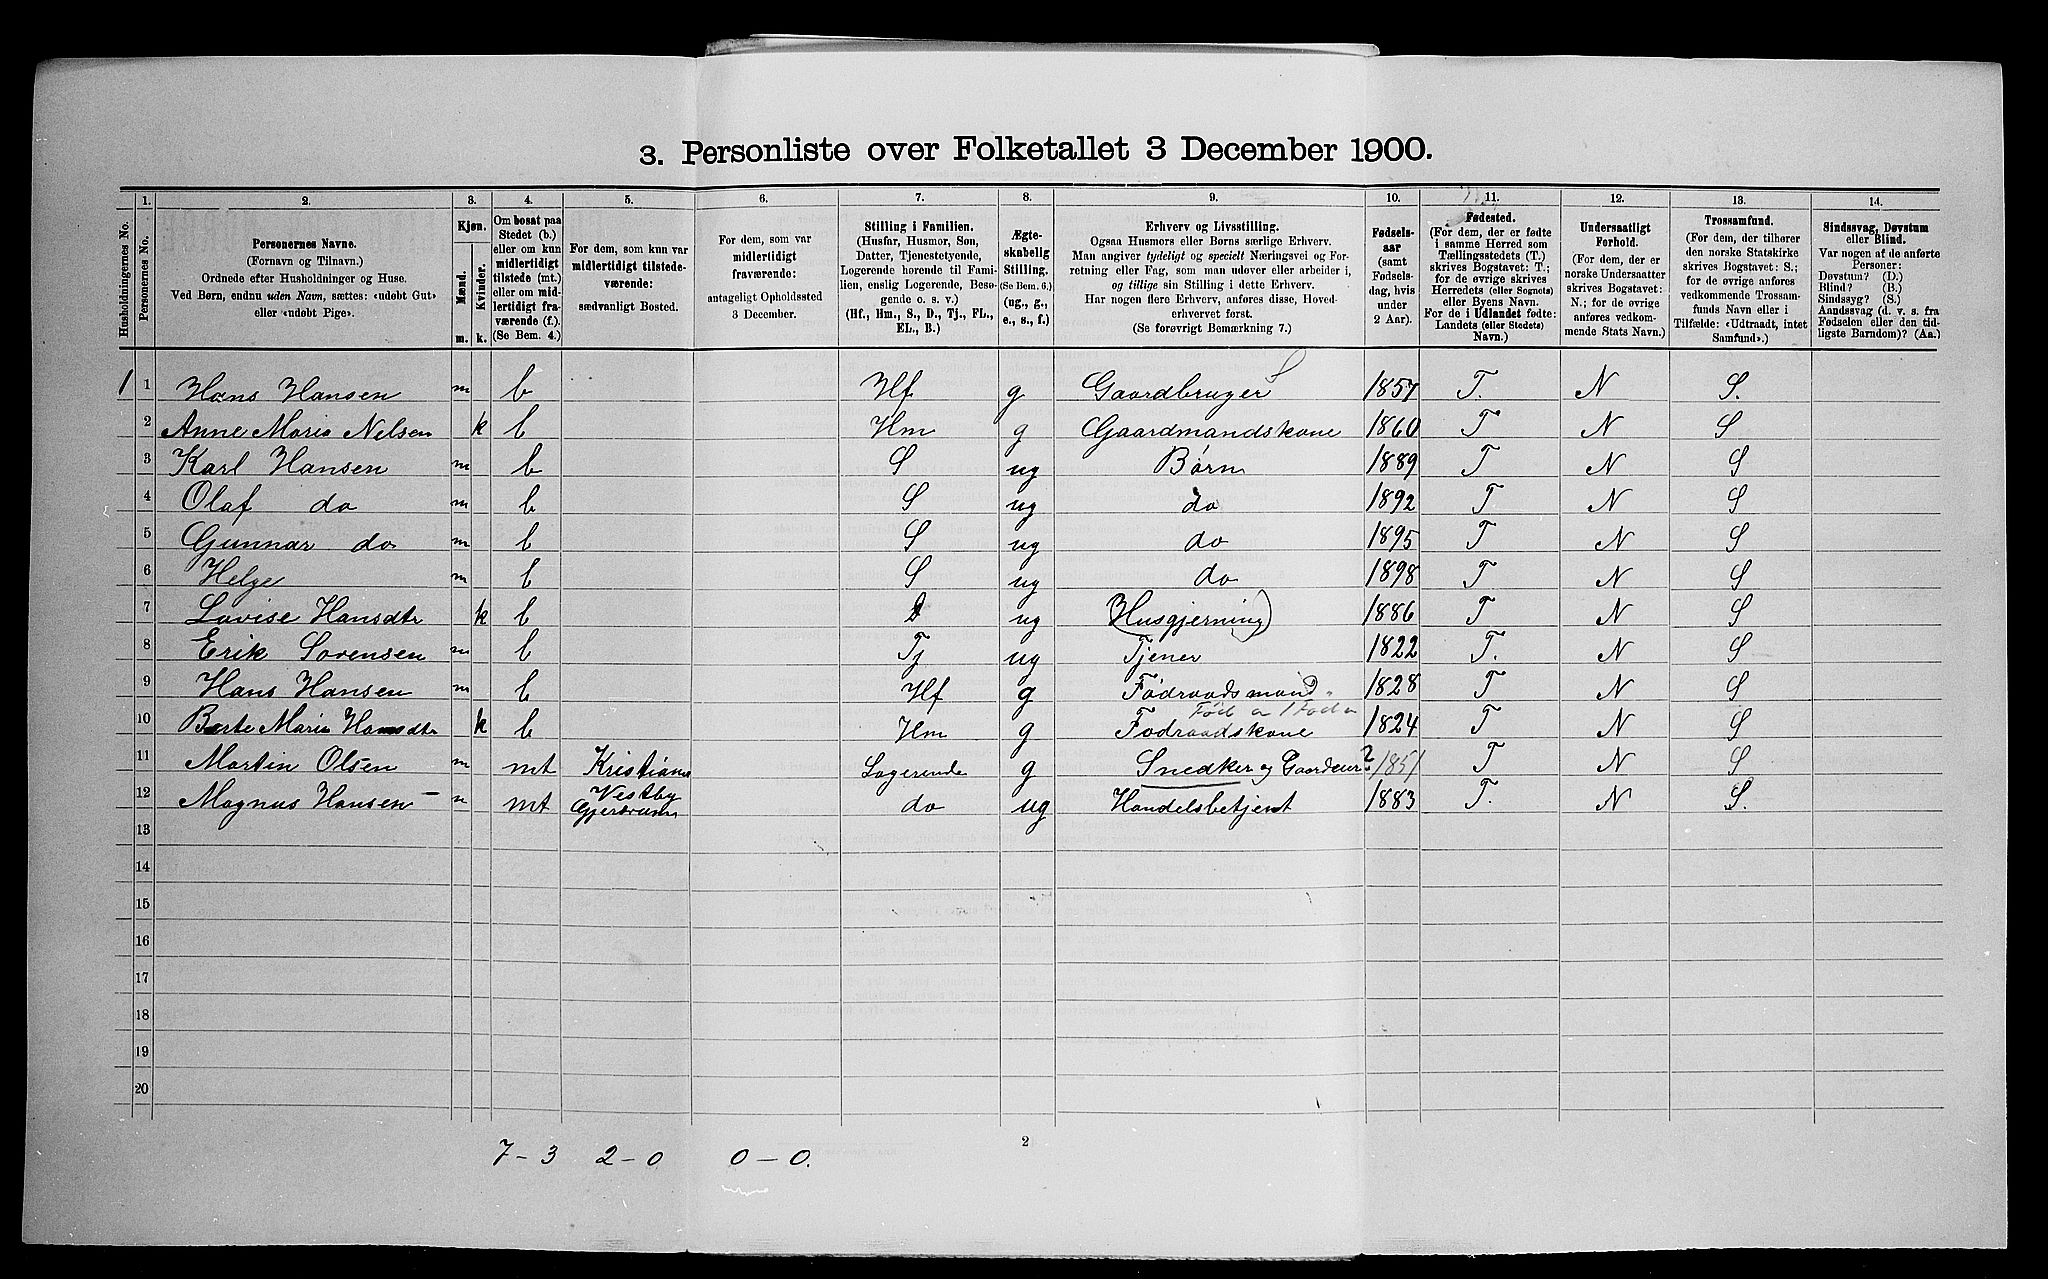 3. Personliste over Folketallet 3 December 1900.
Husholdningernes No.
1. Personernes No.
2. Personernes Navne.
(Fornavn og Tilnavn.)
Ordnede efter Husholdninger og Huse.
Ved Børn, endnu uden Navn, sættes: «udøbt Gut»
eller «udøbt Pige».
3. Kjøn.
Mænd. m.
Kvinder. k.
4. Om bosat paa
Stedet (b.)
eller om kun
midlertidigt
tilstede (mt.)
eller om mid-
lertidigt fra-
værende (f.).
(Se Bem. 4.)
5. For dem, som kun var
midlertidigt tilstede-
værende:
sædvanligt Bosted.
6. For dem, som var
midlertidigt
fraværende:
antageligt Opholdssted
3 December.
7. Stilling i Familien.
(Husfar, Husmor, Søn,
Datter, Tjenestetyende,
Logerende hørende til Fami-
lien, enslig Logerende, Besø-
gende o. s. v.)
(Hf., Hm., S., D., Tj., FL.,
EL., B.)
8. Ægte-
skabelig
Stilling.
(Se Bem. 6.)
(ug., g.,
e., s., f.)
9. Erhverv og Livsstilling.
Ogsaa Husmors eller Børns særlige Erhverv.
Man angiver tydeligt og specielt Næringsvei og For-
retning eller Fag, som man udøver eller arbeider i,
og tillige sin Stilling i dette Erhverv.
Har nogen flere Erhverv, anføres disse, Hoved-
erhvervet først.
(Se forøvrigt Bemærkning 7.)
10. Fødsels-
aar
(samt
Fødsels-
dag, hvis
under
2 Aar).
11. Fødested.
(For dem, der er fødte
i samme Herred som
Tællingsstedets (T.)
skrives Bogstavet: T.;
for de øvrige skrives
Herredets (eller Sognets)
eller Byens Navn.
For de i Udlandet fødte:
Landets (eller Stedets)
Navn.)
12. Undersaatligt
Forhold.
(For dem, der er
norske Undersaatter
skrives Bogstavet:
N.; for de øvrige
anføres vedkom-
mende Stats Navn.)
13. Trossamfund.
(For dem, der tilhører
den norske Statskirke
skrives Bogstavet: S.;
for de øvrige anføres
vedkommende Trossam-
funds Navn eller i
Tilfælde: «Udtraadt, intet
Samfund».)
14. Sindssvag, Døvstum
eller Blind.
Var nogen af de anførte
Personer:
Døvstum? (D.)
Blind? (B.)
Sindssyg? (S.)
Aandssvag (d. v. s. fra
Fødselen eller den tid-
ligste Barndom)? (Aa.)
1 1 Hans Hansen m b Hf g Gaardbruger S 1857 T. N S.
2 Anne Marie Nilsen k b Hm g Gaardmandskone 1860 T N S
3 Karl Hansen m b S ug Børn 1889 T N S
4 Olaf do m b S ug do 1892 T N S
5 Gunnar do m b S ug do 1895 T N S
6 Helge m b S ug do 1898 T N S
7 Lovise Hansdtr k b D ug (Husgjerning) 1886 T N S
8 Erik Sørensen m b Tj ug Tjener 1822 T. N S
9 Hans Hansen m b Hf g Fødraadsmand 1828 T N S
10 Berte Marie Hansdtr k b Hm g Fodraadskone 1824 T N S
11 Martin Olsen m mt Kristiania Logerende g Snedker og Gaardeier? 1851 T N S
12 Magnus Hansen – m mt Vestby Gjerdrum do ug Handelsbetjent 1883 T. N S.
13
14
15
16
17
18
19
20
7–3 2–0 0–0.
2